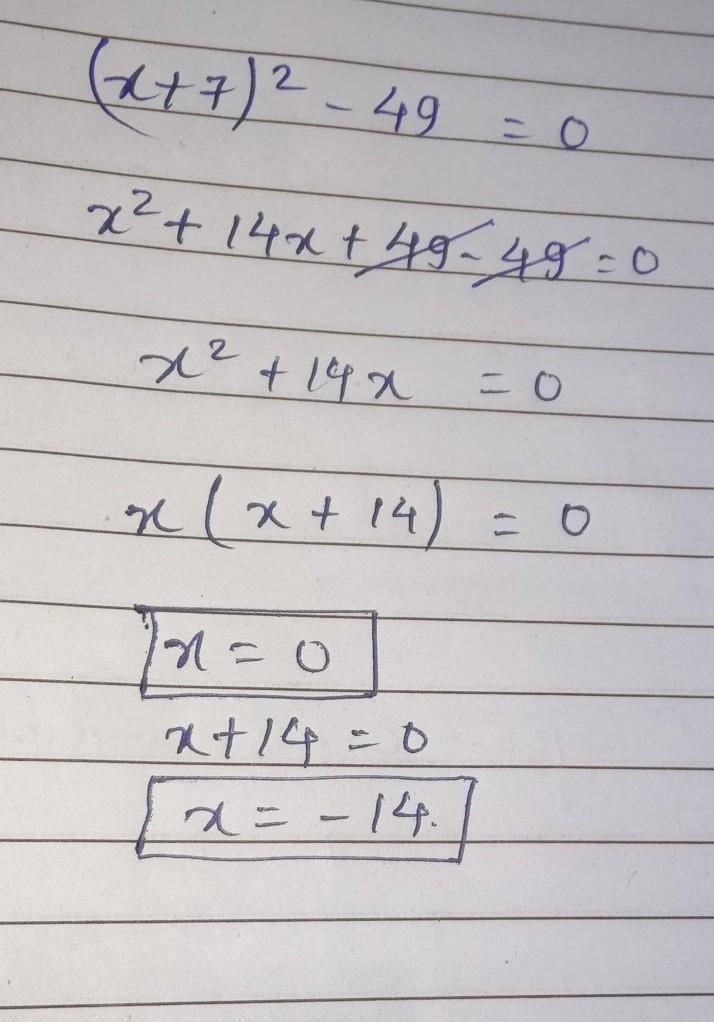 (x+7)² - 49 = 0
x² + 14x + 49 - 49 = 0
x² + 14x = 0
x (x + 14) = 0
x = 0
x + 14 = 0
x = - 14.